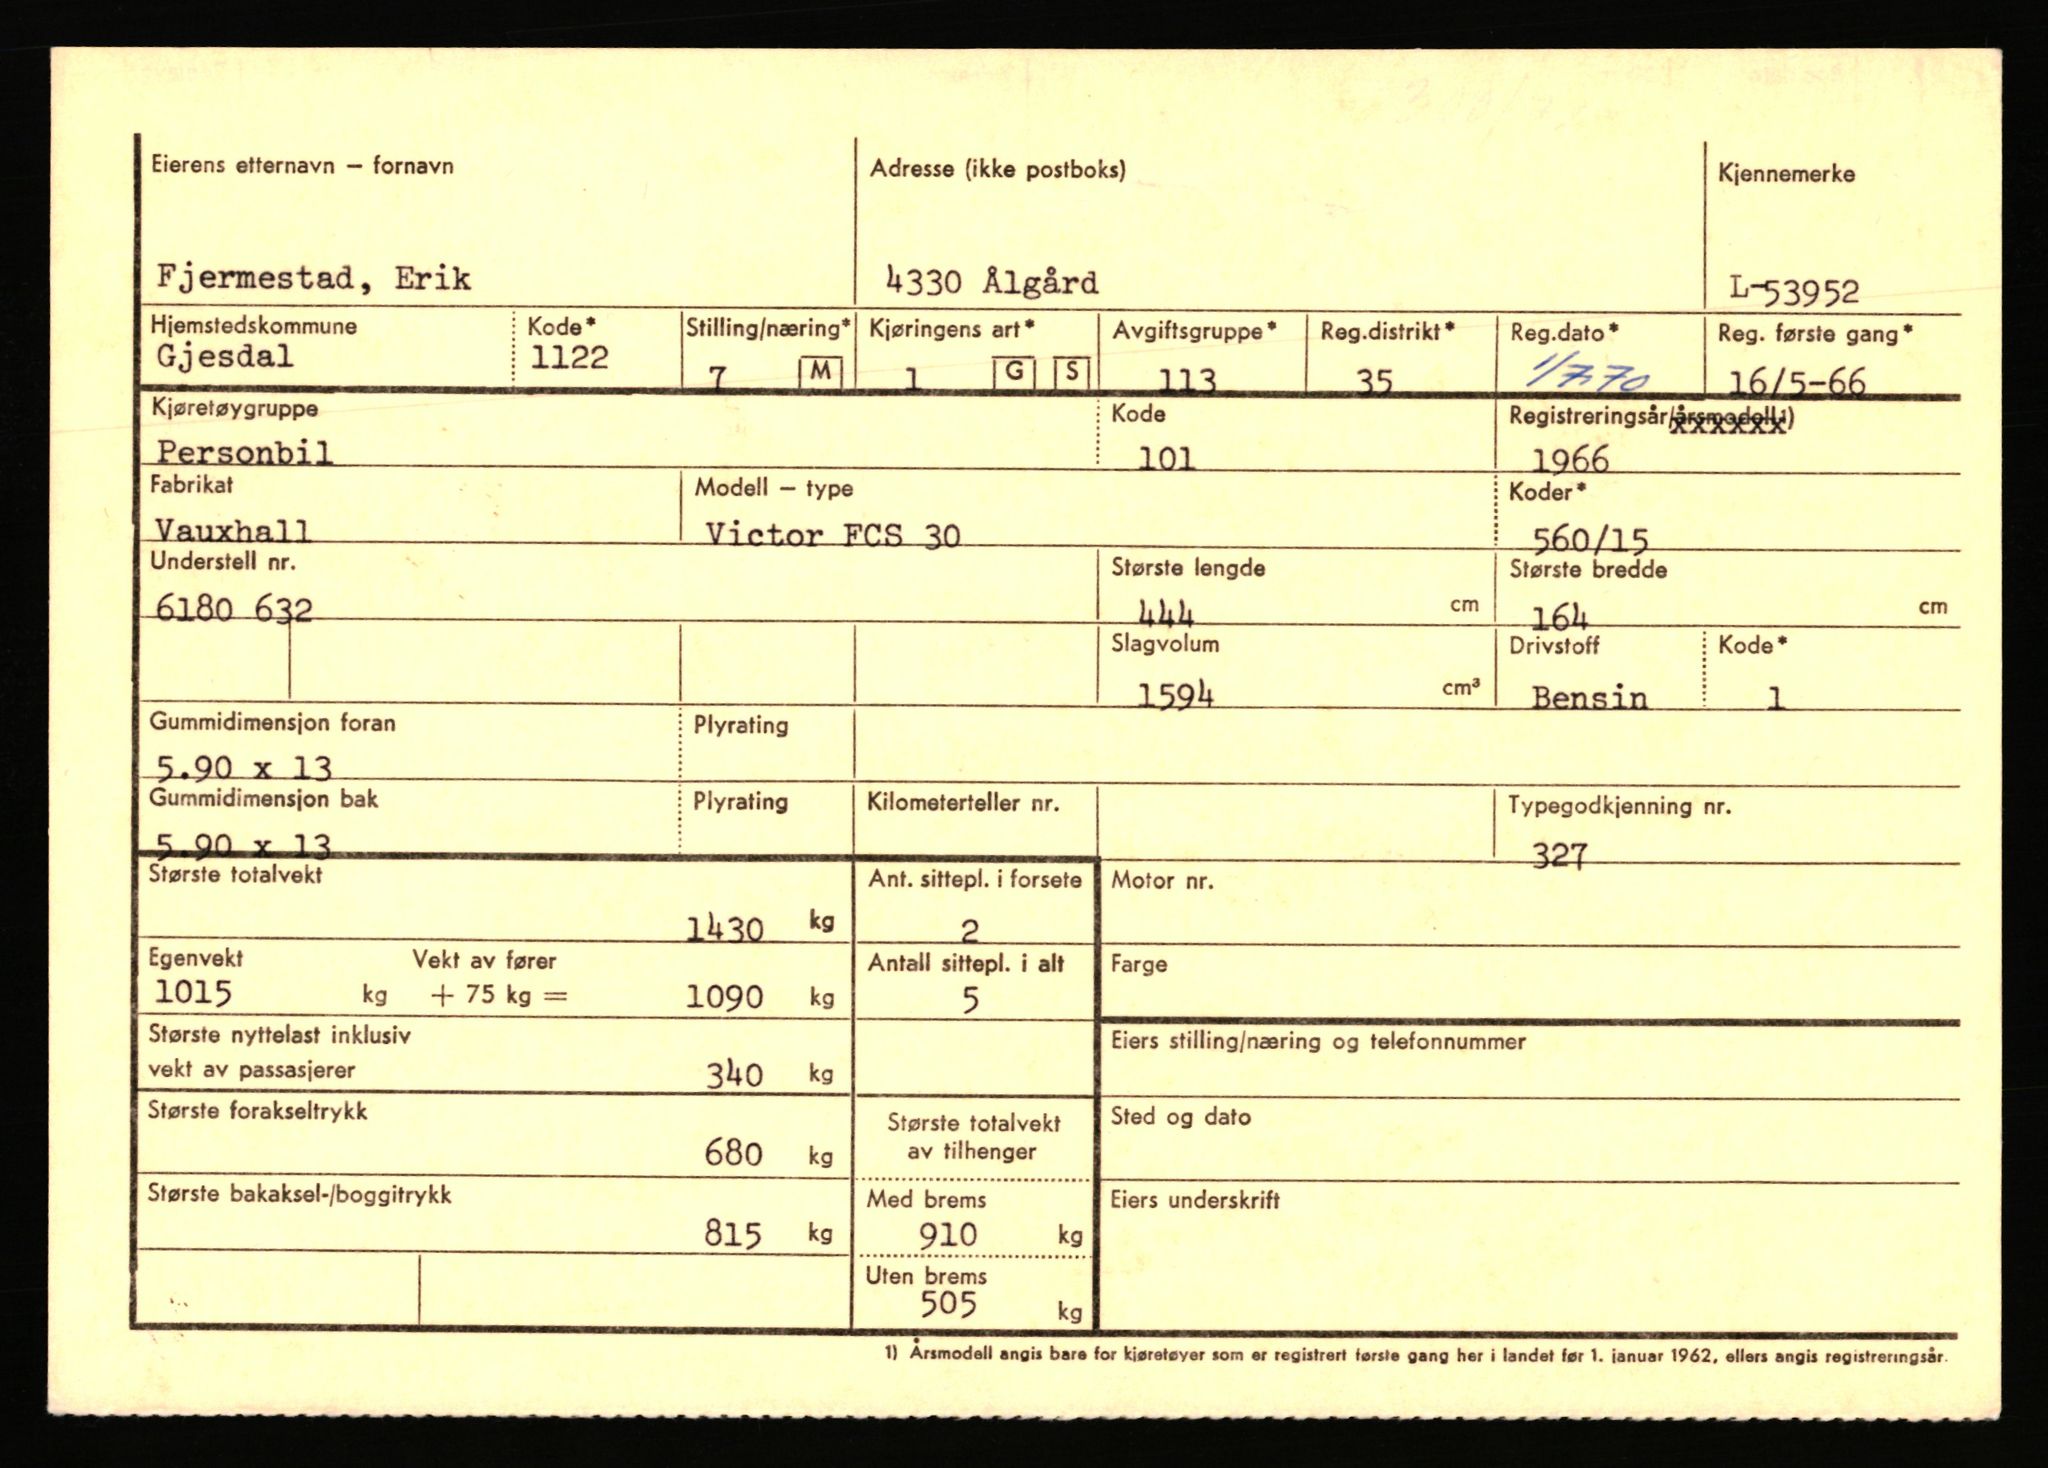 Eierens etternavn – fornavn
Adresse (ikke postboks)
Kjennemerke
Fjermestad, Erik
4330 Ålgård
L-53952
Hjemstedskommune
Kode*
Stilling/næring*
Kjøringens art*
Avgiftsgruppe*
Reg.distrikt*
Reg.dato*
Reg. første gang*
Gjesdal
1122
7 M
1 G S
113
35
1/7.70
16/5-66
Kjøretøygruppe
Kode
Registreringsår/årsmodell1)
Personbil
101
1966
Fabrikat
Modell – type
Koder*
Vauxhall
Victor FCS 30
560/15
Understell nr.
Største lengde
Største bredde
6180 632
444 cm
164 cm
Slagvolum
Drivstoff
Kode*
1594 cm³
Bensin
1
Gummidimensjon foran
Plyrating
5.90 x 13
Gummidimensjon bak
Plyrating
Kilometerteller nr.
Typegodkjenning nr.
5.90 x 13
327
Største totalvekt
Ant. sittepl. i forsete
Motor nr.
1430 kg
2
Egenvekt
Vekt av fører
Antall sittepl. i alt
Farge
1015 kg + 75 kg = 1090 kg
5
Største nyttelast inklusiv
vekt av passasjerer
340 kg
Eiers stilling/næring og telefonnummer
Største forakseltrykk
680 kg
Største totalvekt
av tilhenger
Sted og dato
Største bakaksel-/boggitrykk
815 kg
Med brems
910 kg
Eiers underskrift
Uten brems
505 kg
1) Årsmodell angis bare for kjøretøyer som er registrert første gang her i landet før 1. januar 1962, ellers angis registreringsår.